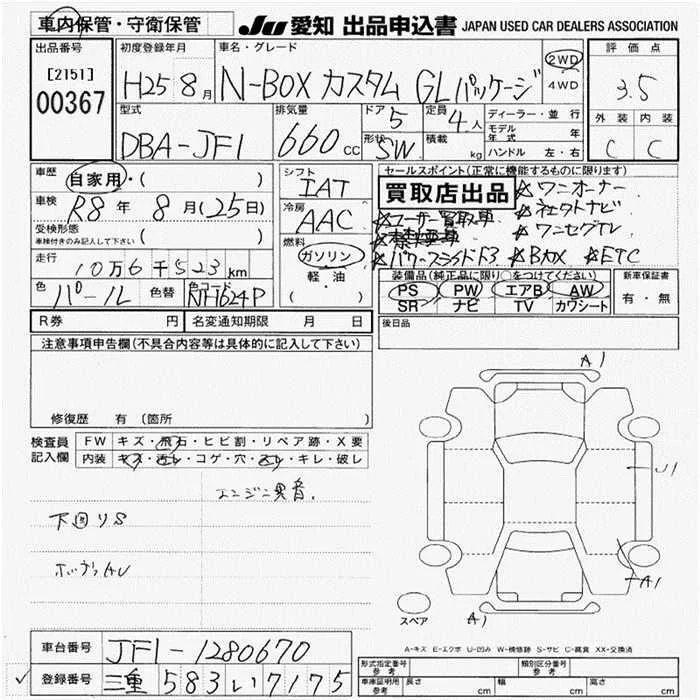 車内保管・守衛保管
JU 愛知 出品申込書 JAPAN USED CAR DEALERS ASSOCIATION
出品番号
[2151]
00367
初度登録年月
H25 8月
車名・グレード
N-BOX カスタム GLパッケージ
2WD
4WD
評価点
3.5
外装 内装
C C
型式
DBA-JF1
排気量
660 cc
ドア
5
定員
4人
形状
SW
積載
kg
ディーラー・並行
モデル年式 年
ハンドル 左・右
車歴
自家用・( )
車検
R8年 8月(25日)
受検形態
車検付きのみ記入して下さい ( )
走行
10万6千523km
色
パール
色替
色コード
NH624P
シフト
IAT
冷房
AAC
燃料
ガソリン
・
軽・油
( )
セールスポイント(正常に機能するものに限ります)
買取店出品
☆ワンオーナー
☆ユーザー買取車
☆ワンセグTV
☆パワースライドドア ☆ETC
装備品(純正品に限り○をつけてください)
PS PW エアB AW
SR ナビ TV カワシート
新車保証書
有・無
R券 円
名変通知期限 月 日
後日品
注意事項申告欄(不具合内容等は具体的に記入して下さい)
修復歴 有 (箇所
検査員記入欄
FW キズ・飛石・ヒビ割・リペア跡・X要
内装 キズ・汚レ・コゲ・穴・・キレ・破レ
エンジン異音.
下回りS
A1
U1
A1
A1
スペア
A-キズ E-エクボ U-凹み W-補修跡 S-サビ C-腐食 XX-交換済
車台番号 JF1-1280670
登録番号 三重 583 い 7175
型式指定番号 参考
類別区分番号 参考
車庫証明用 参考 長さ cm 幅 cm 高さ cm